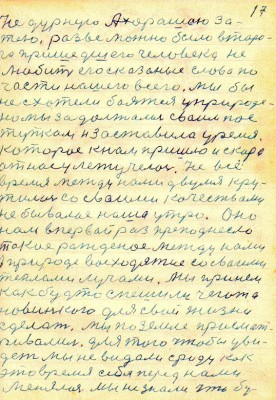 17
Не дурную А хорошаю за-
тею. разве можно было второ-
го пришедшего человека не
любить его сказаные слова по
части нашего всего. Мы бы
не схотели боятся у природе
но мы задолжали своим пос
тупкам и заставила время.
которое к нам пришло и скоро
от нас улетучелося. Не всё
время между нами двумя кру-
тилися со своими качествами
не бывалое наше утро. Оно
нам впервай раз преподнесло
такие рожденое между нами
природе восходятие со своими
тёплами лучами. Мы при нем
как будто спешили чегота
новинкого для свый жизни
сделат. Мы по земле присмат-
ривалися. для того чтобы уви-
дет мы не видали сроду как
это время себя перед нами
менялося мы не знали что бу-